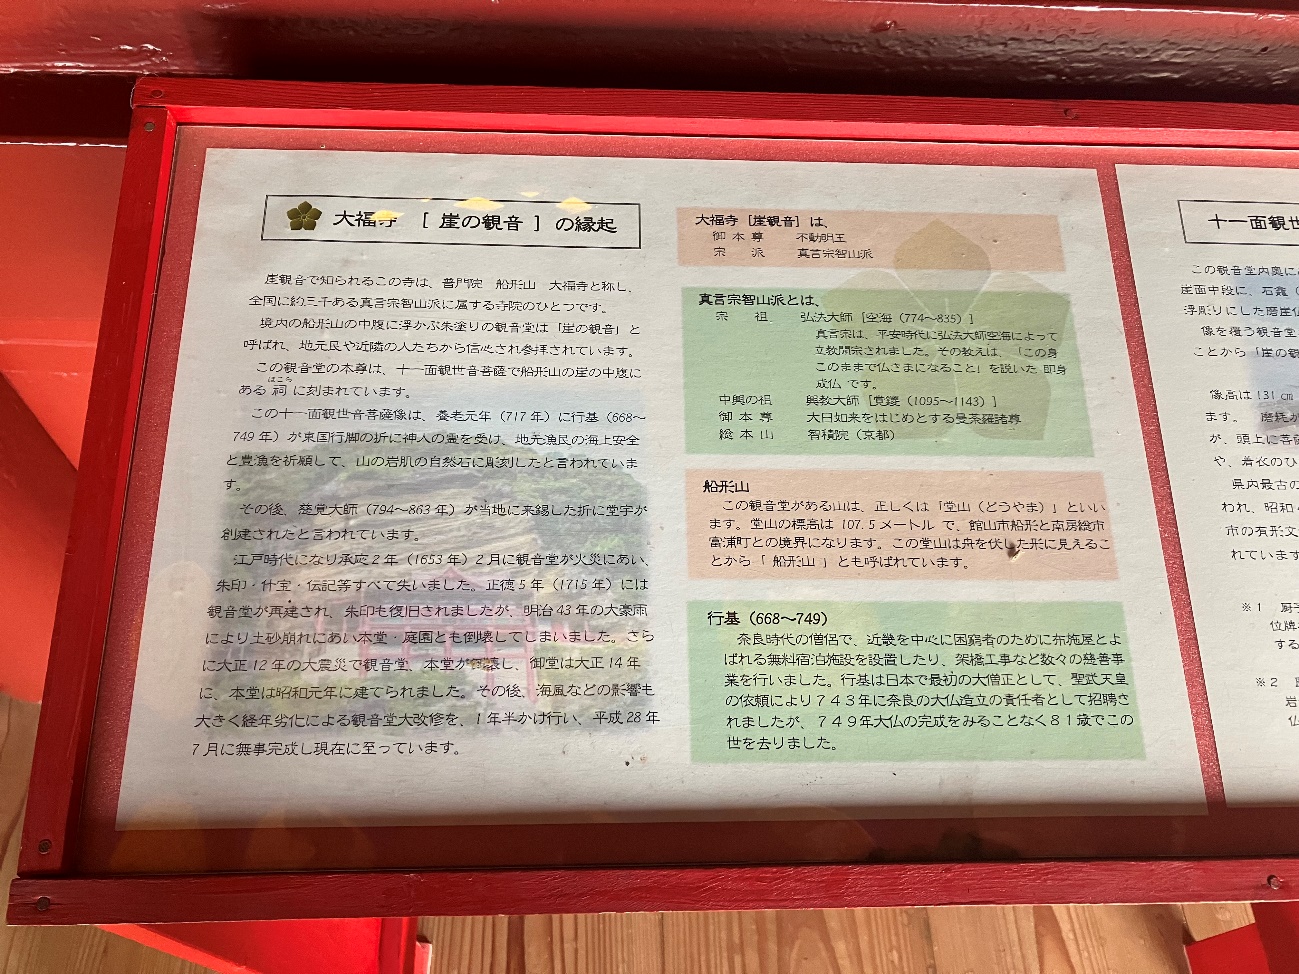 大福寺 [ 崖の観音 ] の縁起
崖観音で知られるこの寺は、普門院 船形山 大福寺と称し、
全国に約三千ある真言宗智山派に属する寺院のひとつです。
境内の船形山の中腹に浮かぶ朱塗りの観音堂は「崖の観音」と
呼ばれ、地元民や近隣の人たちから信心され参拝されています。
この観音堂の本尊は、十一面観世音菩薩で船形山の崖の中腹に
ほこら
ある 祠 に刻まれています。
この十一面観世音菩薩像は、養老元年（717 年）に行基（668～
749 年）が東国行脚の折に神人の霊を受け、地元漁民の海上安全
と豊漁を祈願して、山の岩肌の自然石に彫刻したと言われていま
す。
その後、慈覚大師（794～863 年）が当地に来錫した折に堂宇が
創建されたと言われています。
江戸時代になり承応 2 年（1653 年）2 月に観音堂が火災にあい、
朱印・什宝・伝記等すべて失いました。正徳 5 年（1715 年）には
観音堂が再建され、朱印も復旧されましたが、明治 43 年の大豪雨
により土砂崩れにあい本堂・庭園とも倒壊してしまいました。さら
に大正 12 年の大震災で観音堂、本堂が倒壊し、御堂は大正 14 年
に、本堂は昭和元年に建てられました。その後、海風などの影響も
大きく経年劣化による観音堂大改修を、1 年半かけ行い、平成 28 年
7 月に無事完成し現在に至っています。
大福寺［崖観音］は、
御本尊 不動明王
宗派 真言宗智山派
真言宗智山派とは、
宗祖 弘法大師［空海（774～835）］
真言宗は、平安時代に弘法大師空海によって
立教開宗されました。その教えは、「この身
このままで仏さまになること」を説いた 即身
成仏 です。
中興の祖 興教大師［覚鑁（1095～1143）］
御本尊 大日如来をはじめとする曼荼羅諸尊
総本山 智積院（京都）
船形山
この観音堂がある山は、正しくは「堂山（どうやま）」といい
ます。堂山の標高は 107.5 メートル で、館山市船形と南房総市
富浦町との境界になります。この堂山は舟を伏した形に見えるこ
とから「 船形山 」とも呼ばれています。
行基（668～749）
奈良時代の僧侶で、近畿を中心に困窮者のために布施屋とよ
ばれる無料宿泊施設を設置したり、架橋工事など数々の慈善事
業を行いました。行基は日本で最初の大僧正として、聖武天皇
の依頼により７４３年に奈良の大仏造立の責任者として招聘さ
れましたが、７４９年大仏の完成をみることなく８１歳でこの
世を去りました。
十一面観世
この観音堂内奥に
崖面中段に、石龕（
浮彫りにした磨崖仏
像を覆う観音堂
ことから「崖の観
像高は 131 ㎝
ます。 磨耗が
が、頭上に菩薩
や、着衣のひ
県内最古の
われ、昭和 4
市の有形文
れています
※１ 厨子
位牌
する
※２
岩
仏